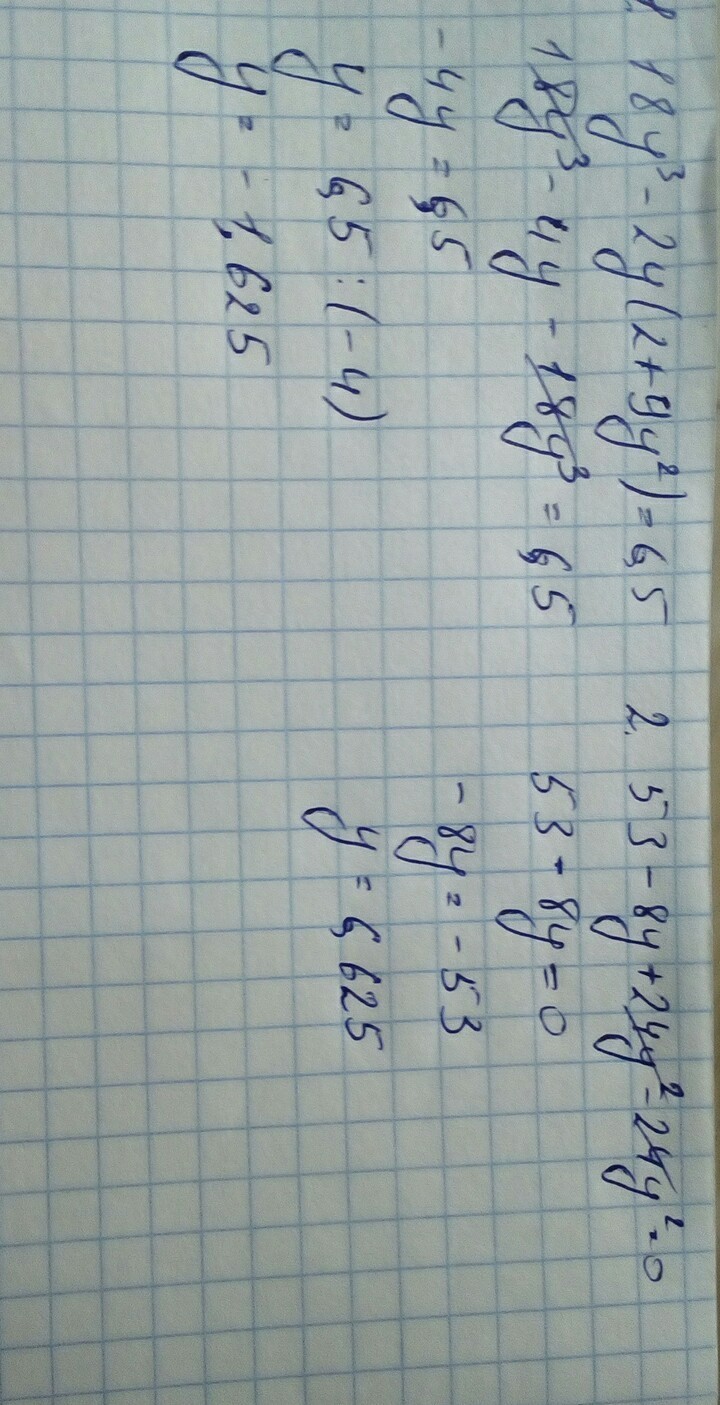 1. 18y³ - 2y(2 + 9y²) = 6,5
18y³ - 4y - 18y³ = 6,5
-4y = 6,5
y = 6,5 : (-4)
y = -1,625
2. 53 - 8y + 24y² - 24y² = 0
53 - 8y = 0
-8y = -53
y = 6,625